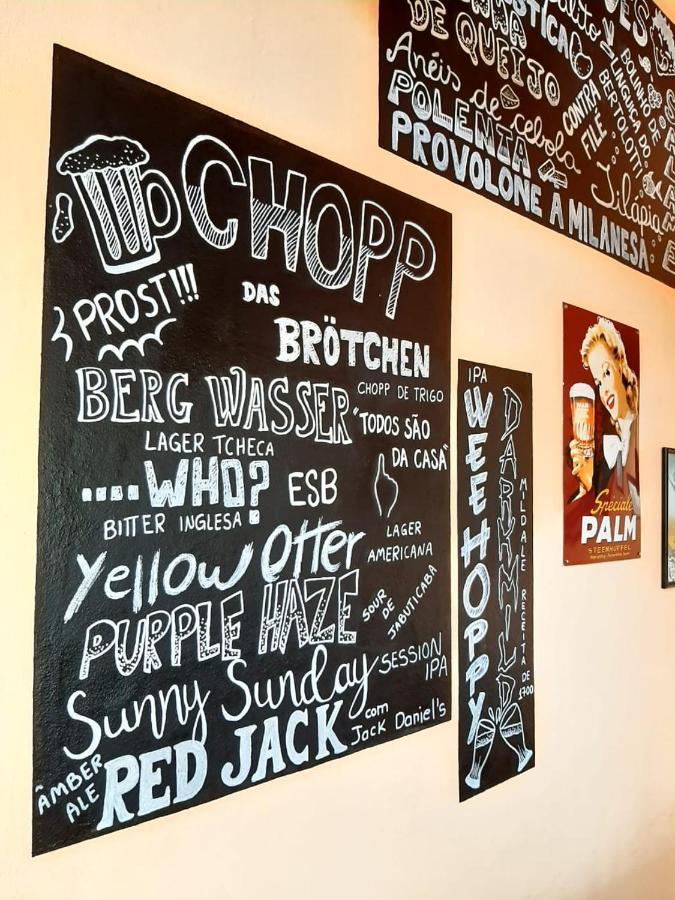 CHOPP
PROST!!!
DAS
BRÖTCHEN
CHOPP DE TRIGO
BERG WASSER
LAGER TCHECA
"TODOS SÃO
DA CASA"
....WHO? ESB
BITTER INGLESA
Yellow Otter
LAGER
AMERICANA
PURPLE HAZE
SOUR
DE
JABUTICABA
Sunny Sunday
SESSION
IPA
ÂMBER
ALE
RED JACK
com
Jack Daniel's
IPA
WEE HOPPY
DARKMILD
MILD ALE RECEITA DE
1700
DE QUEIJO
Anéis de cebola
POLENTA
PROVOLONE À MILANESA
CONTRA
FILE
BOLINHO DE
LINGUIÇA DO
BERTOLOTTI
Tilápia
Spéciale
PALM
STEENHUFFEL